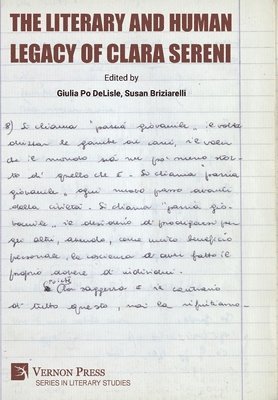 THE LITERARY AND HUMAN
LEGACY OF CLARA SERENI
Edited by
Giulia Po DeLisle, Susan Briziarelli
8) Si chiama "pazzia giovanile" il voler
drizzar le gambe ai cani, il voler
che il mondo sia un po' meno stor-
to di quello che è - Si chiama "pazzia
giovanile" ogni nuovo passo avanti
della civiltà. Si chiama "pazzia gio-
vanile" il desiderio di prodigarsi per
gli altri, avendo, come unico beneficio
personale, la coscienza di aver fatto il
proprio dovere di individui.
poiché
la saggezza è il contrario
di tutto questo, noi la rifiutiamo-
VERNON PRESS
SERIES IN LITERARY STUDIES